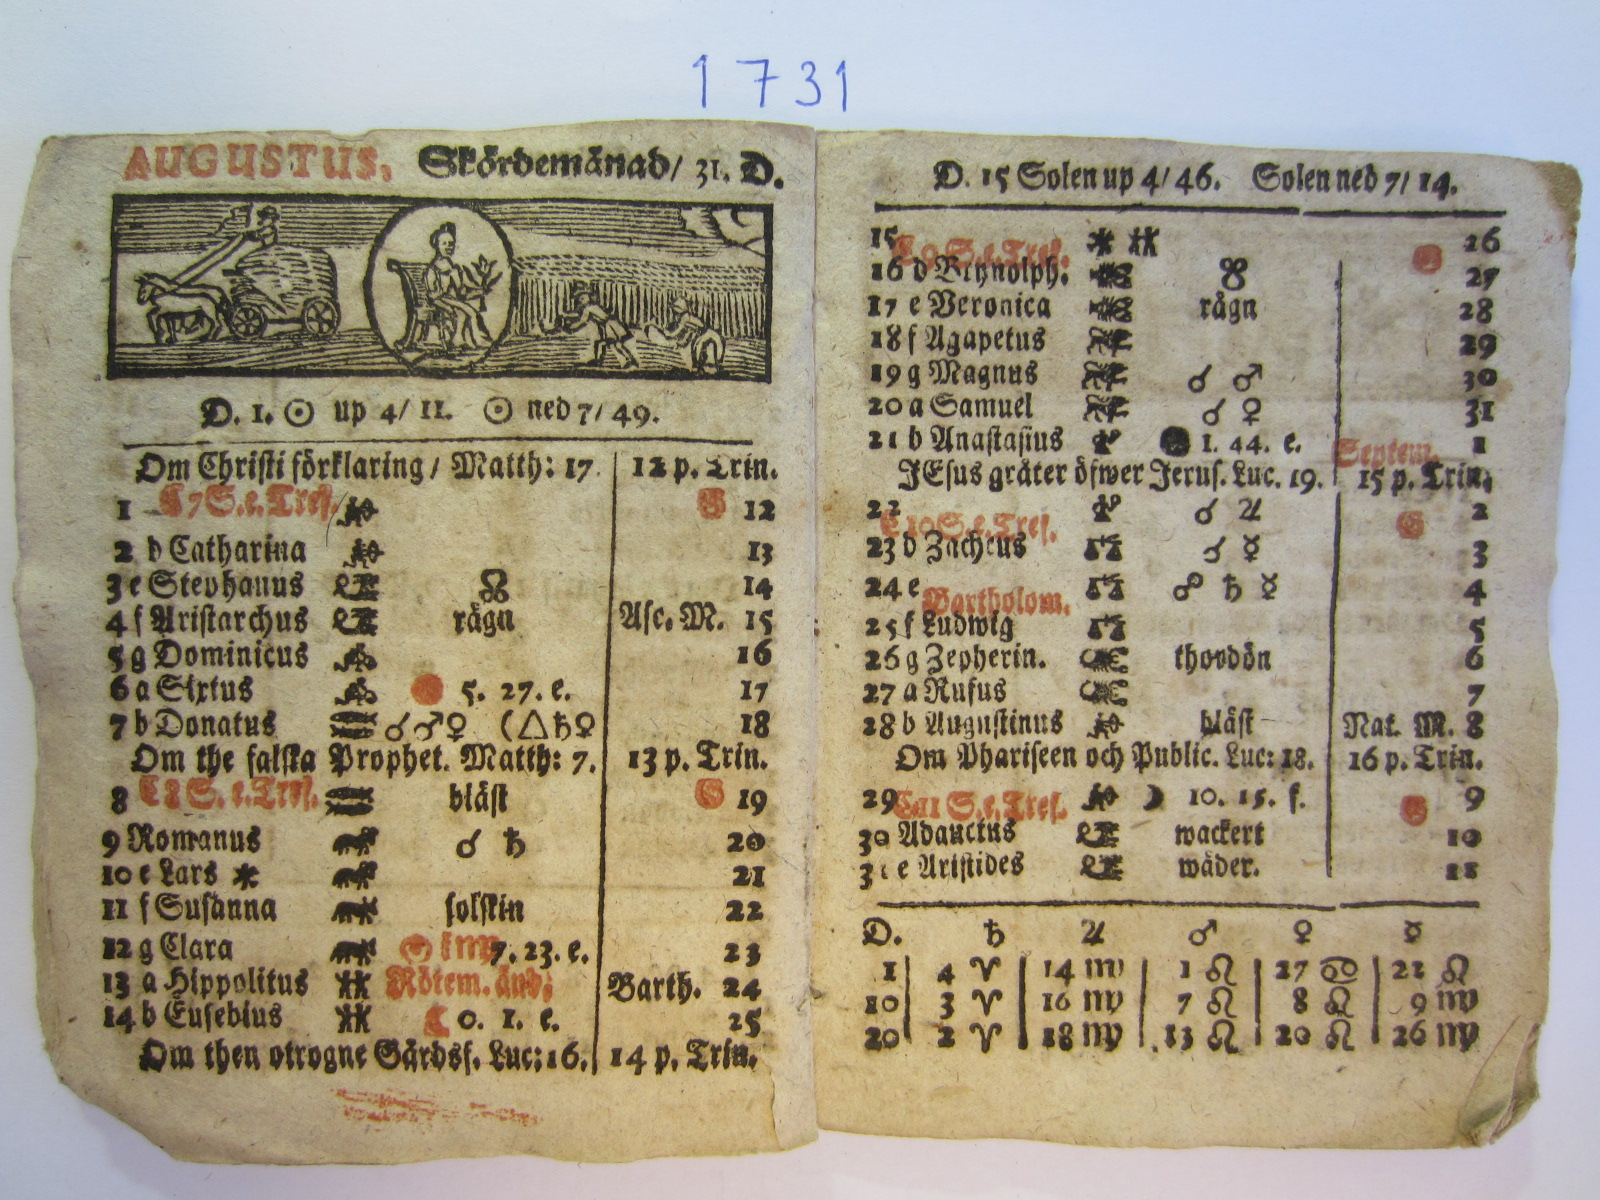 1731
AUGUSTUS, Skördemånad/ 31. D.
D. 1. ☉ up 4/ 11. ☉ ned 7/ 49.
Om Christi förklaring / Matth: 17. 12 p. Trin.
1 C 7 S. e. Tref. G 12
2 d Catharina 13
3 e Stephanus ☊ 14
4 f Aristarchus rägn Asc. M. 15
5 g Dominicus 16
6 a Sixtus 5. 27. e. 17
7 b Donatus ☌ ♂ ♀ (△ ♄ ♀ 18
Om the falska Prophet. Matth: 7. 13 p. Trin.
8 C 8 S. e. Tref. bläst G 19
9 Romanus ☌ ♄ 20
10 e Lars * 21
11 f Susanna solskin 22
12 g Clara ☉ i ♍ 7. 23. e. 23
13 a Hippolitus Rötem. änd. Barth. 24
14 b Eusebius ☾ 0. 1. e. 25
Om then otrogne Gårdsf. Luc: 16. 14 p. Trin.
D. 15 Solen up 4/ 46. Solen ned 7/ 14.
15 C 9 S. e. Tref. * G 26
16 d Brynolph. ☋ 27
17 e Veronica rägn 28
18 f Agapetus 29
19 g Magnus ☌ ♂ 30
20 a Samuel ☌ ♀ 31
21 b Anastasius ● 1. 44. e. Septem. 1
JEsus gräter öfwer Jerus. Luc. 19. 15 p. Trin.
22 C 10 S. e. Tref. ☌ ♃ G 2
23 d Zacheus ☌ ☿ 3
24 e Bartholom. ☍ ♄ ☿ 4
25 f Ludwig 5
26 g Zepherin. thordön 6
27 a Rufus 7
28 b Augustinus bläst Nat. M. 8
Om Phariseen och Public. Luc: 18. 16 p. Trin.
29 C 11 S. e. Tref. ☽ 10. 15. f. G 9
30 Adauctus wackert 10
31 e Aristides wäder. 11
D. ♄ ♃ ♂ ♀ ☿
1 4 ♈ 14 ♍ 1 ♌ 27 ♋ 21 ♌
10 3 ♈ 16 ♍ 7 ♌ 8 ♌ 9 ♍
20 2 ♈ 18 ♍ 13 ♌ 20 ♌ 26 ♍